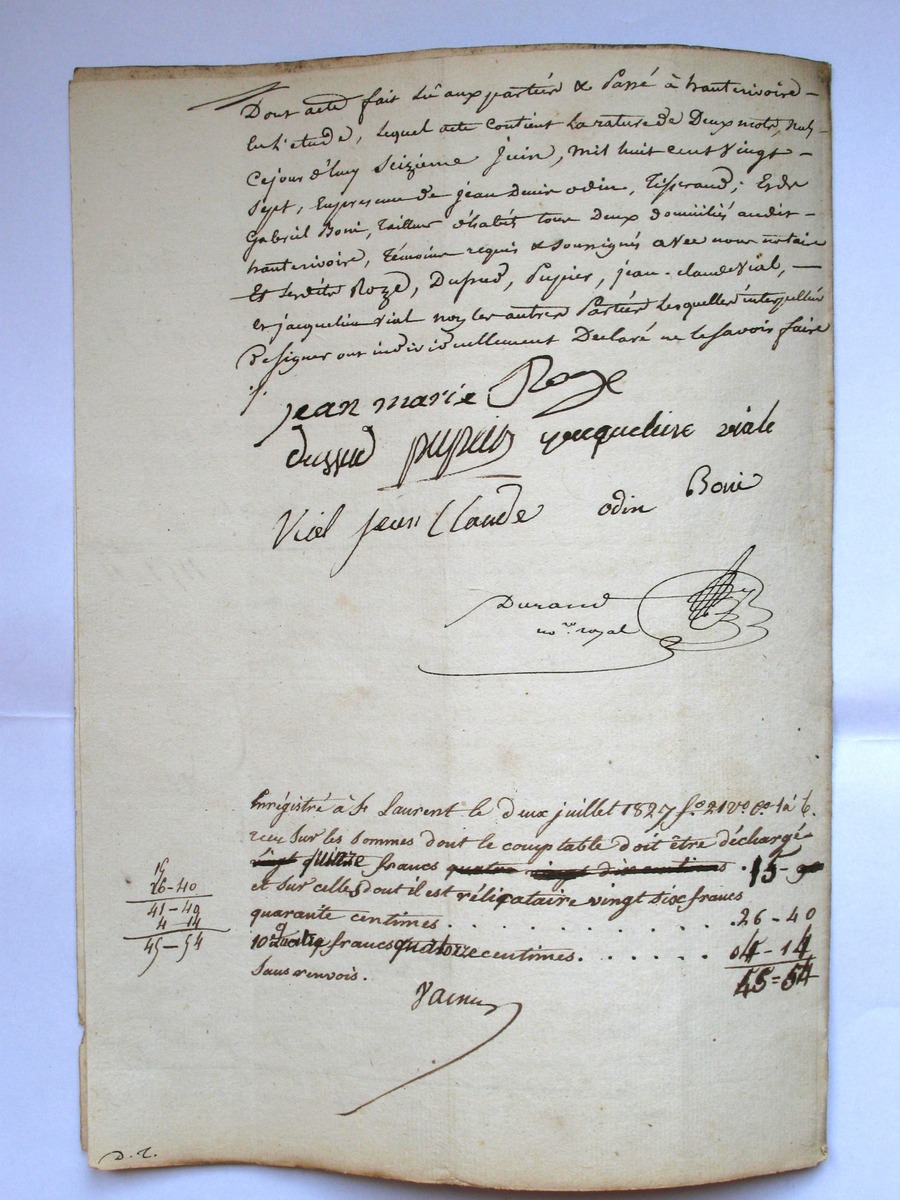 Dont acte fait lû aux parties & Passé à hauterivoire -
En l'etude, lequel acte contient la rature de Deux mots, nuls -
Cejourd'huy Seizieme juin, mil huit cent vingt -
Sept, En presence de jean Denis odin, Tisserand ; Et de
Gabriel Boni, tailleur d'habits tous Deux domiciliés audit -
hauterivoire, témoins requis & soussignés avec nous notaire
Et lesdits Roze, Dussud, Pupier, jean-claude Vial, -
et jacqueline vial non les autres Parties lesquelles interpellées
De signer ont individuellement Declaré ne le savoir faire
jean marie Roze
dussud pupier jacqueline viale
Viel jean Claude odin Boni
Durand
no.re royal
Enrégistré à St Laurent le deux juillet 1827 fo. 21 vo. Co. 1 à 6.
reçu sur les sommes dont le comptable doit être déchargé
quinze francs . 15-
et sur celles dont il est réliqataire vingt six francs
quarante centimes . . . . . . . . . . . 26-40
10e quatre francs quatorze centimes. . . . . . . 04-14
Sans renvois. 45=54
15
26-40
41-40
4-14
45-54
D. T.